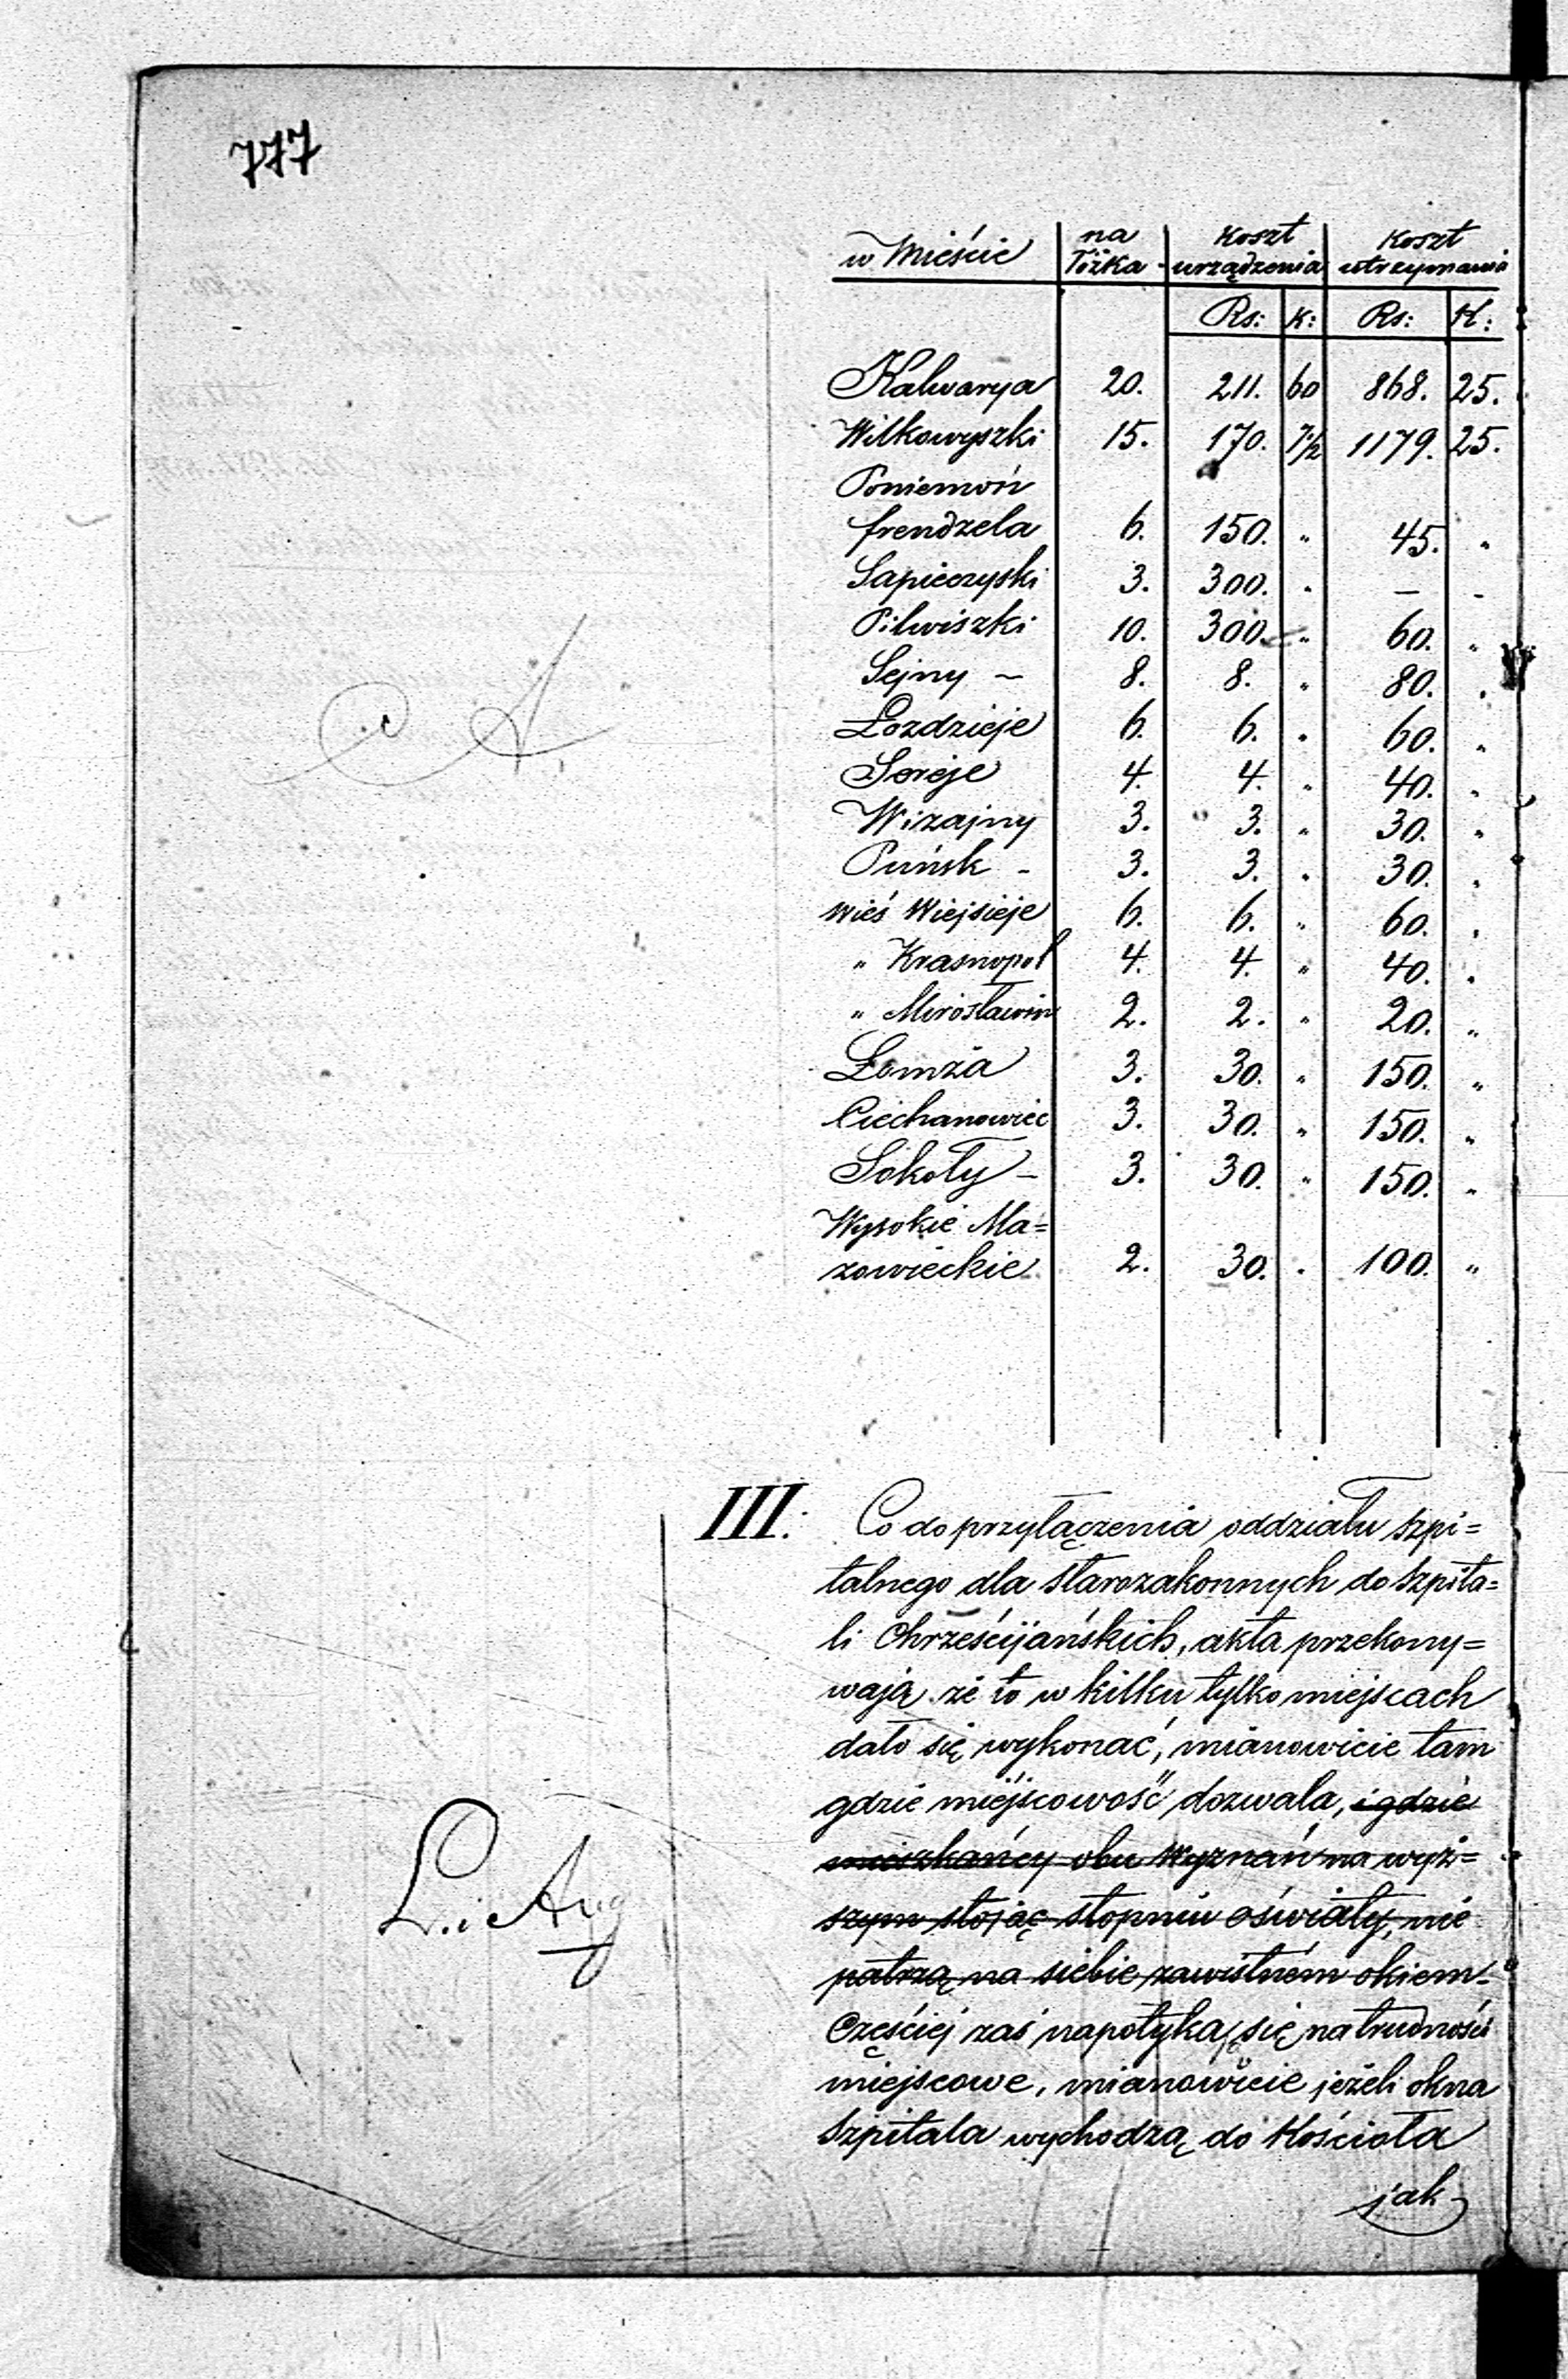 777
w Mieście | na łóżka | koszt urządzenia | koszt utrzymania
Rs: | k: | Rs: | K:
Kalwarya 20. 211. 60 868. 25.
Wilkowyszki 15. 170. 7½ 1179. 25.
Poniemoń
frendzela 6. 150. „ 45. „
Sapieczyski 3. 300. „ — -
Pilwiszki 10. 300. „ 60. „
Sejny – 8. 8. „ 80. „
Łozdzieje 6. 6. „ 60. „
Sereje 4. 4. „ 40. „
Wizajny 3. 3. „ 30. „
Puńsk - 3. 3. „ 30. „
wieś Wiejsieje 6. 6. „ 60. „
„ Krasnopol 4. 4. „ 40. „
„ Mirosławin 2. 2. „ 20. „
Łomża 3. 30. „ 150. „
Ciechanowiec 3. 30. „ 150. „
Sokoły – 3. 30. „ 150. „
Wysokie Ma=
zowieckie 2. 30. „ 100. „
III: Co do przyłączenia oddziału szpi=
talnego dla starozakonnych do szpita=
li Chrześcijańskich, akta przekony=
wają że to w kilku tylko miejscach
dało się wykonać, mianowicie tam
gdzie miejscowość dozwala, i gdzie
mieszkańcy obu Wyznań na wyż=
szym stojąc stopniu oświaty, nie
patrzą na siebie zawistném okiem.
Częściej zaś napotyka się na trudności
miejscowe, mianowicie jeżeli okna
szpitala wychodzą do Kościoła
jak
L. i Aug